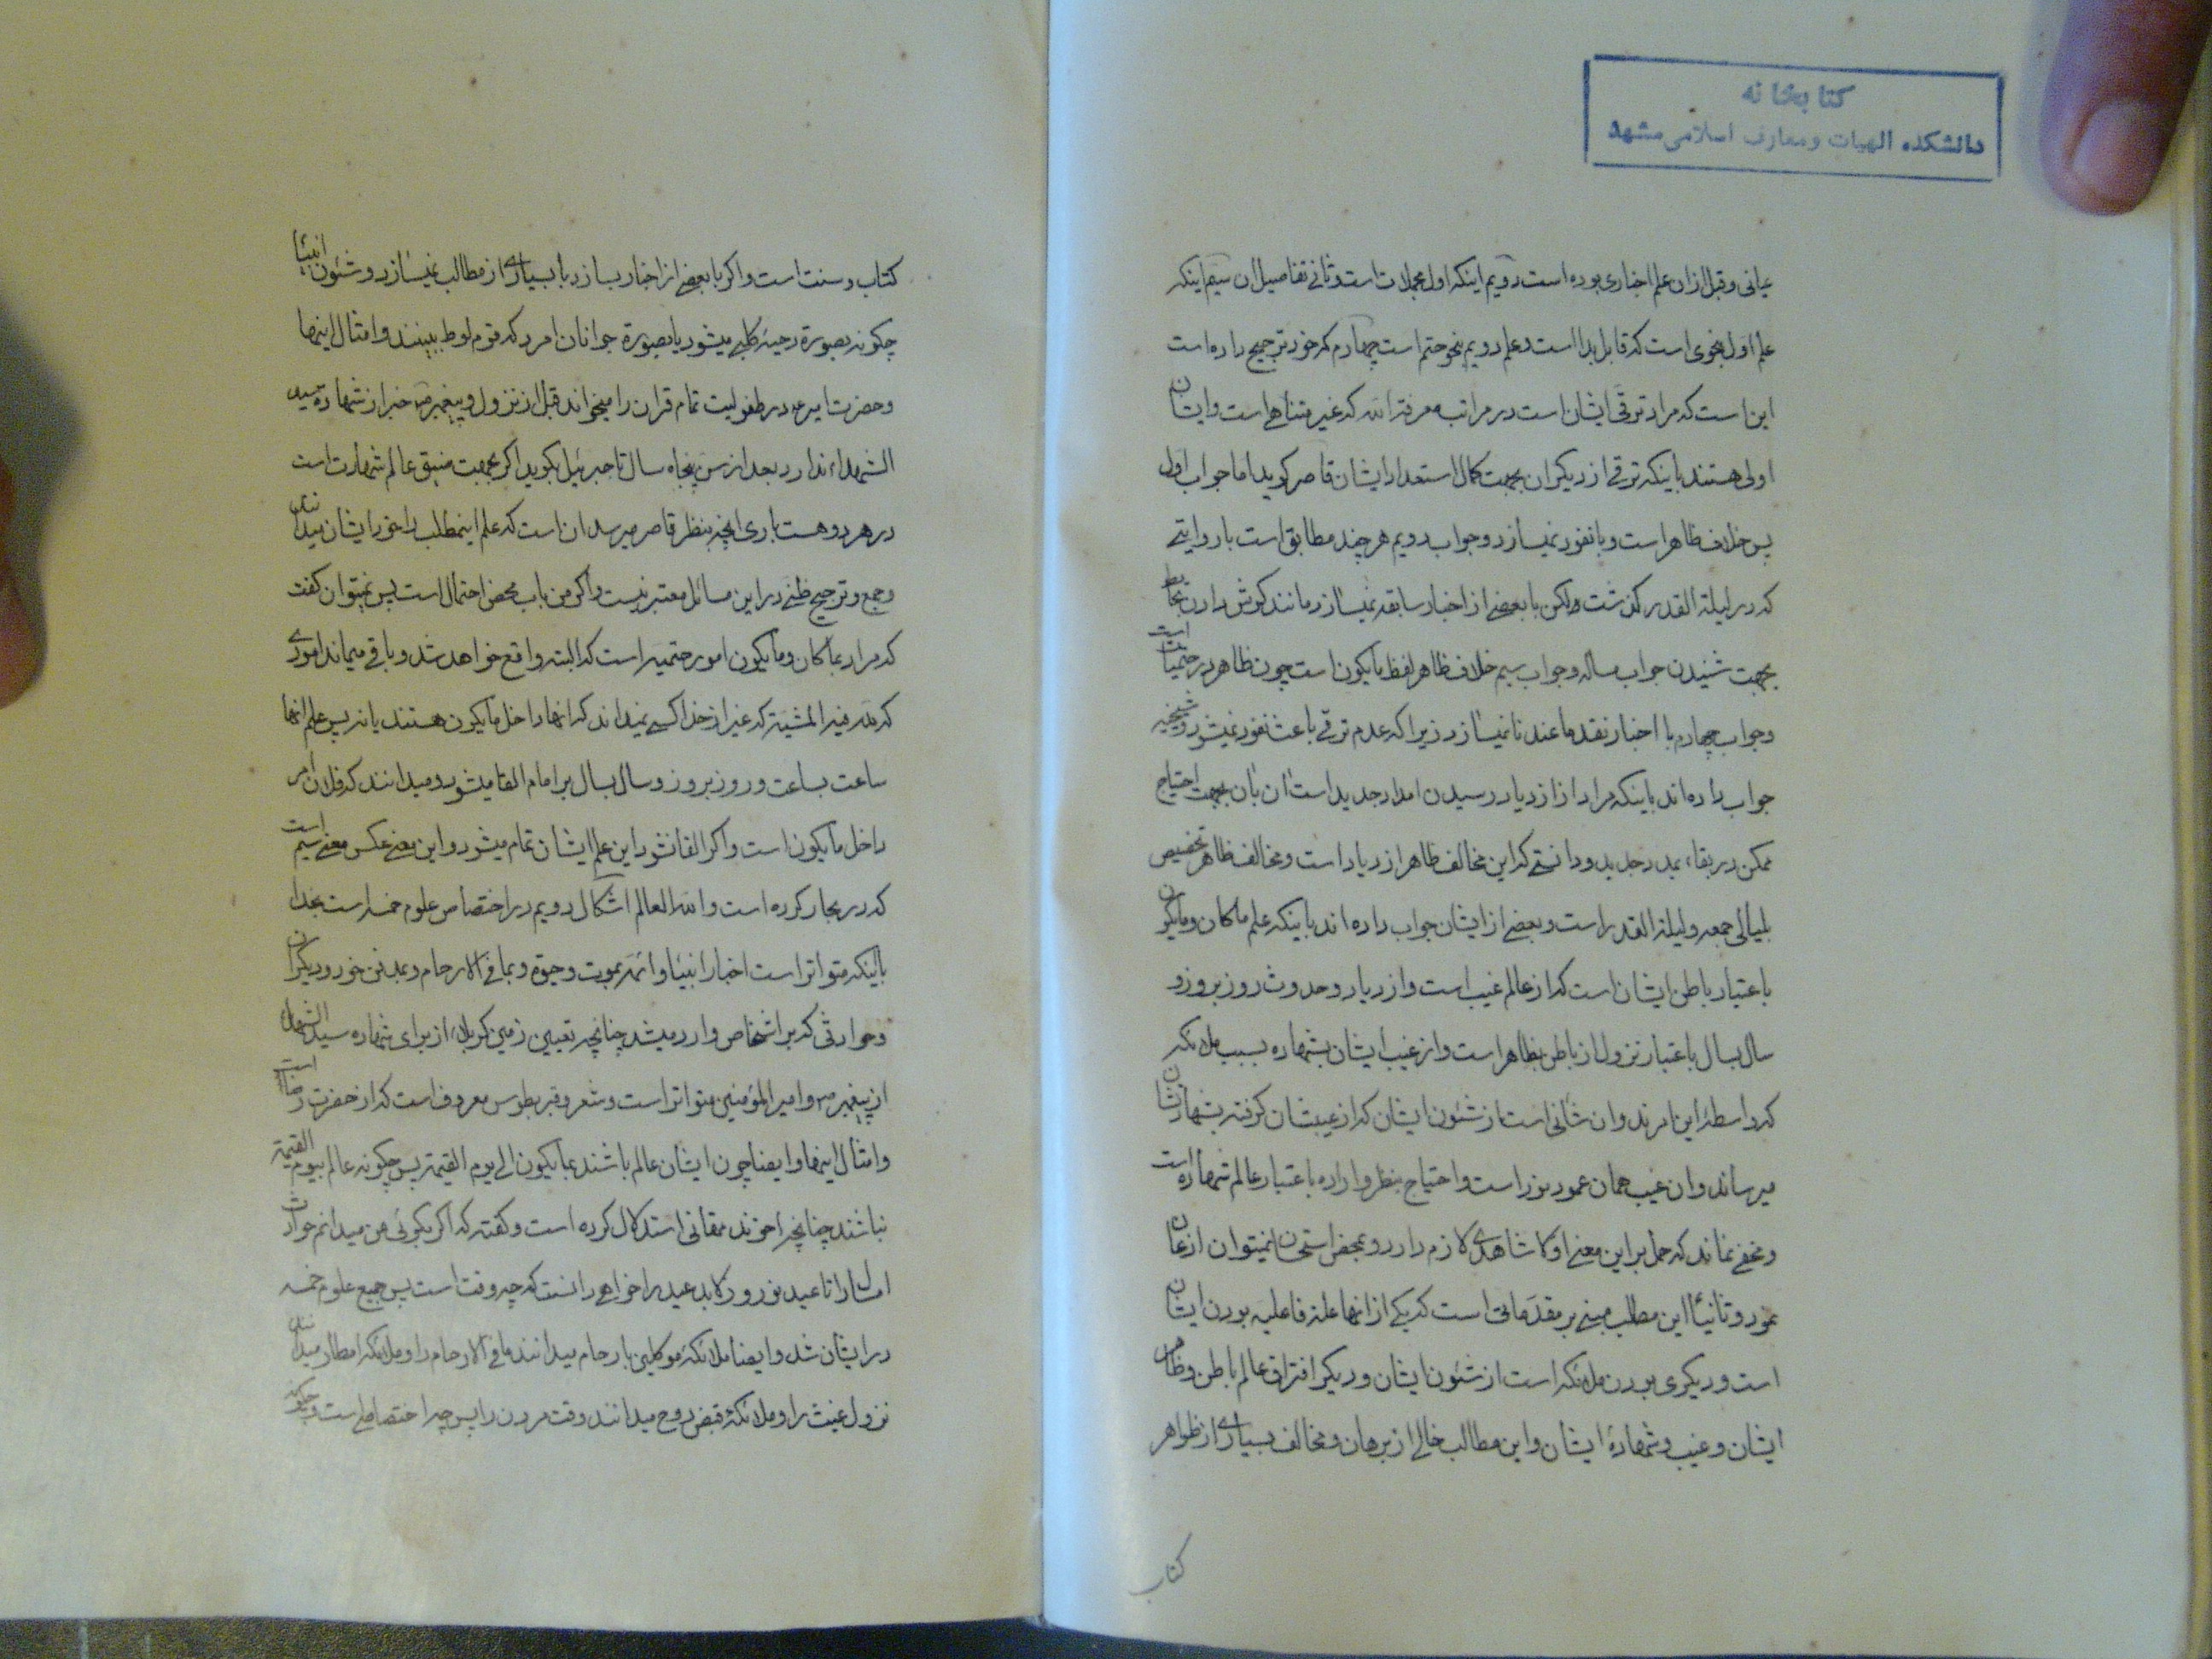 کتابخانه
دانشکده الهیات و معارف اسلامی مشهد
عیانی و قبل ازان علم اخباری بوده است دویم اینکه اول مجملات است و ثانی تفاصیل ان سیم اینکه
علم اول بنحوی است که قابل بدا است و علم دویم بنحو حتم است چهارم که خود ترجیح داده است
این است که مراد ترقی ایشان است در مراتب معرفة الله که غیر متناهی است و ایشان
اولی هستند باینکه ترقی از دیگران بجهت کمال استعداد ایشان قاصر کوید اما جواب اول
پس خلاف ظاهر است و با نفود نمیسازد و جواب دویم هر چند مطابق است با روایتی
که در لیلة القدر کذشت ولکن با بعضی از اخبار سابقه نمیسازد مانند کوش دادن بخاطر
بجهت شنیدن جواب مساله و جواب سیم خلاف ظاهر لفظ ما یکون است چون ظاهر در حتمیات است
وجواب چهارم با اخبار نفد ما عندنا نمیسازد زیرا که عدم ترقی باعث نفود نمیشود و شیخیه
جواب داده اند باینکه مراد از ازدیاد رسیدن امداد جدید است ان بان بجهت احتیاج
ممکن در بقاء بمدد جدید و دانستی که این مخالف ظاهر ازدیاد است و مخالف ظاهر تخصیص
بلیالی جمعه و لیلة القدر است و بعضی از ایشان جواب داده اند باینکه علم ما کان و ما یکون
باعتبار باطن ایشان است که از عالم غیب است و ازدیاد و حدوث روز بروز و
سال بسال باعتبار نزول از باطن بظاهر است و از غیب ایشان بشهاده بسبب ملائکه
که واسطه این امرند و ان شانی است از شئون ایشان که از غیبشان کرفته بشهادتشان
میرساند و ان غیب همان عمود نور است و احتیاج بنظر و اراده باعتبار عالم شهاده است
و مخفی نماند که حمل بر این معنی اولا شاهدی لازم دارد و بمحض استحسان نمیتوان اذعان
نمود و ثانیا این مطلب مبنی بر مقدماتی است که یکی از انها علة فاعلیه بودن ایشان
است و دیکری بودن ملائکه است از شئون ایشان و دیکر افتراق عالم باطن و ظاهر
ایشان و غیب و شهادۀ ایشان و این مطالب خالی از برهان و مخالف بسیاری از ظواهر
کتاب
کتاب و سنت است و اکر با بعضی از اخبار بسازد با بسیاری از مطالب نمیسازد و شئون انبیا
چکونه بصورة دحیه کلبی میشود یا بصورة جوانان امرد که قوم لوط ببینند و امثال اینها
وحضرت امیر ع در طفولیت تمام قران را میخواند قبل از نزول و پیغمبر ص خبر از شهادة سید
الشهداء ندارد بعد از سن پنجاه سال تا جبرئیل بکوید اکر بجهت ضیق عالم شهادت است
در هر دو هست باری انچه بنظر قاصر میرسد ان است که علم اینمطلب را خود ایشان میدانند
وجمع و ترجیح ظنی در این مسائل معتبر نیست و اکر من باب محض احتمال است پس نمیتوان کفت
که مراد بما کان و ما یکون امور حتمیه است که البته واقع خواهد شد و باقی میماند اموری
که لله فیه المشیة که غیر از خدا کسی نمیداند که انها داخل ما یکون هستند یا نه پس علم انها
ساعت بساعت و روز بروز و سال بسال بر امام القا میشود و میدانند که فلان امر
داخل ما یکون است و اکر القا نشود این علم ایشان تمام میشود و این معنی عکس معنی سیم است
که در بحار کرده است و الله العالم اشکال دویم در اختصاص علوم خمسه است بخدا
باینکه متواتر است اخبار انبیا و ائمه بموت و حیوة و بما فی الارحام و بمدفن خود و دیکران
وحوادثی که بر اشخاص وارد میشد چنانچه تعیین زمین کربلاء از برای شهاده سید الشهداء
از پیغمبر ص و امیر المؤمنین متواتر است و شعر و قبر بطوس معروف است که از حضرت رضا است
وامثال اینها و ایضا چون ایشان عالم باشند بما یکون الی یوم القیمة پس چکونه عالم بیوم القیمة
نباشند چنانچه اخوند ممقانی استدلال کرده است و کفته که اکر بکوئی من میدانم حوادث
امسال را تا عید نوروز لابد عید را خواهی دانست که چه وقت است پس جمیع علوم خمسه
در ایشان شد و ایضا ملائکه موکلین بارحام میدانند ما فی الارحام را و ملائکه امطار میدانند
نزول غیث را و ملائکه قبض روح میدانند وقت مردن را پس چه اختصاصی است و چکونه